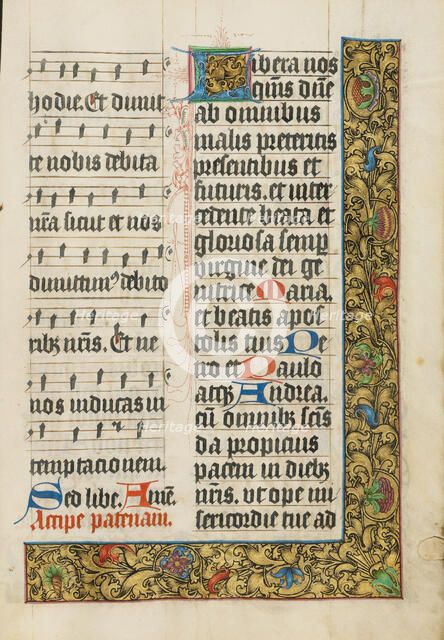 hodie. Et dimit
te nobis debita
nr̄a sicut et nos
dimittim᷒ debito
ribꝫ nr̄is. Et ne
nos inducas in
temptacionem.
Sed libe. Amē.
Accipe patenam.
Libera nos
q̄ius dn̄e
ab omnibus
malis preteritis
presentibus et
futuris. et inter
cedente beata et
gloriosa semp
virgine dei ge
nitrice Maria.
et beatis apo
stolis tuis Pe
tro et Paulo
atqꝫ Andrea.
cū omnibꝫ scīs
da propicius
pacem in diebꝫ
nr̄is. vt ope mi
sericordie tue ad
heritage
heritage
heritage
heritage
heritage
heritage